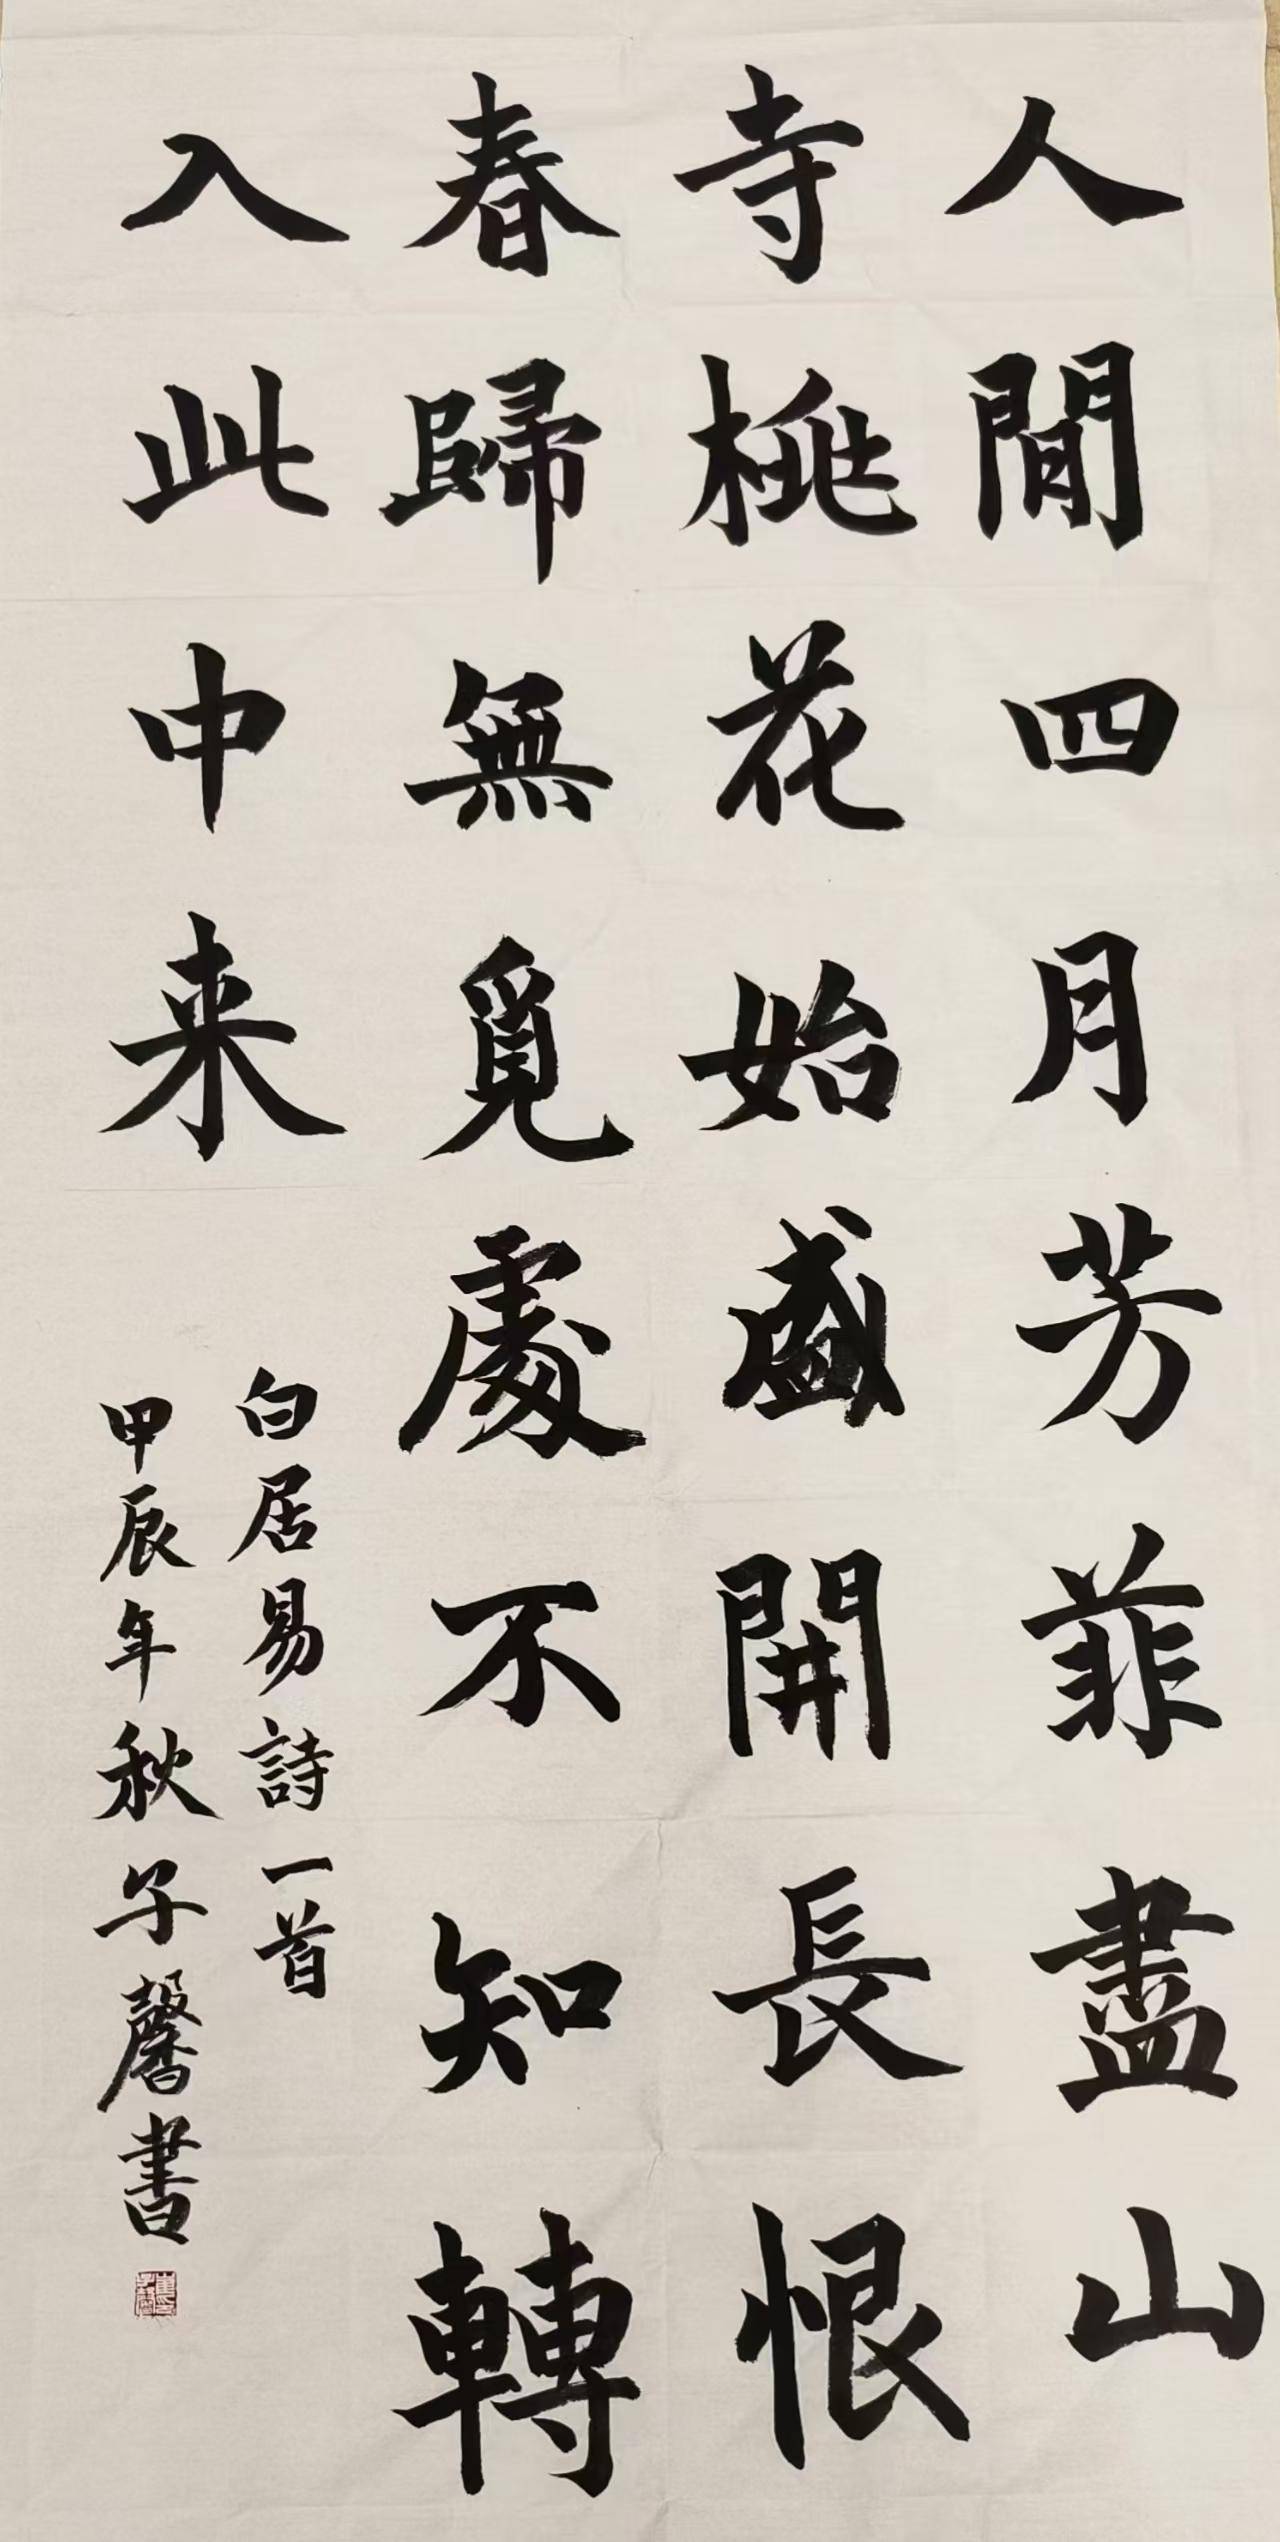 人間四月芳菲盡山
寺桃花始盛開長恨
春歸無覓處不知轉
入此中来
白居易詩一首
甲辰年秋子馨書